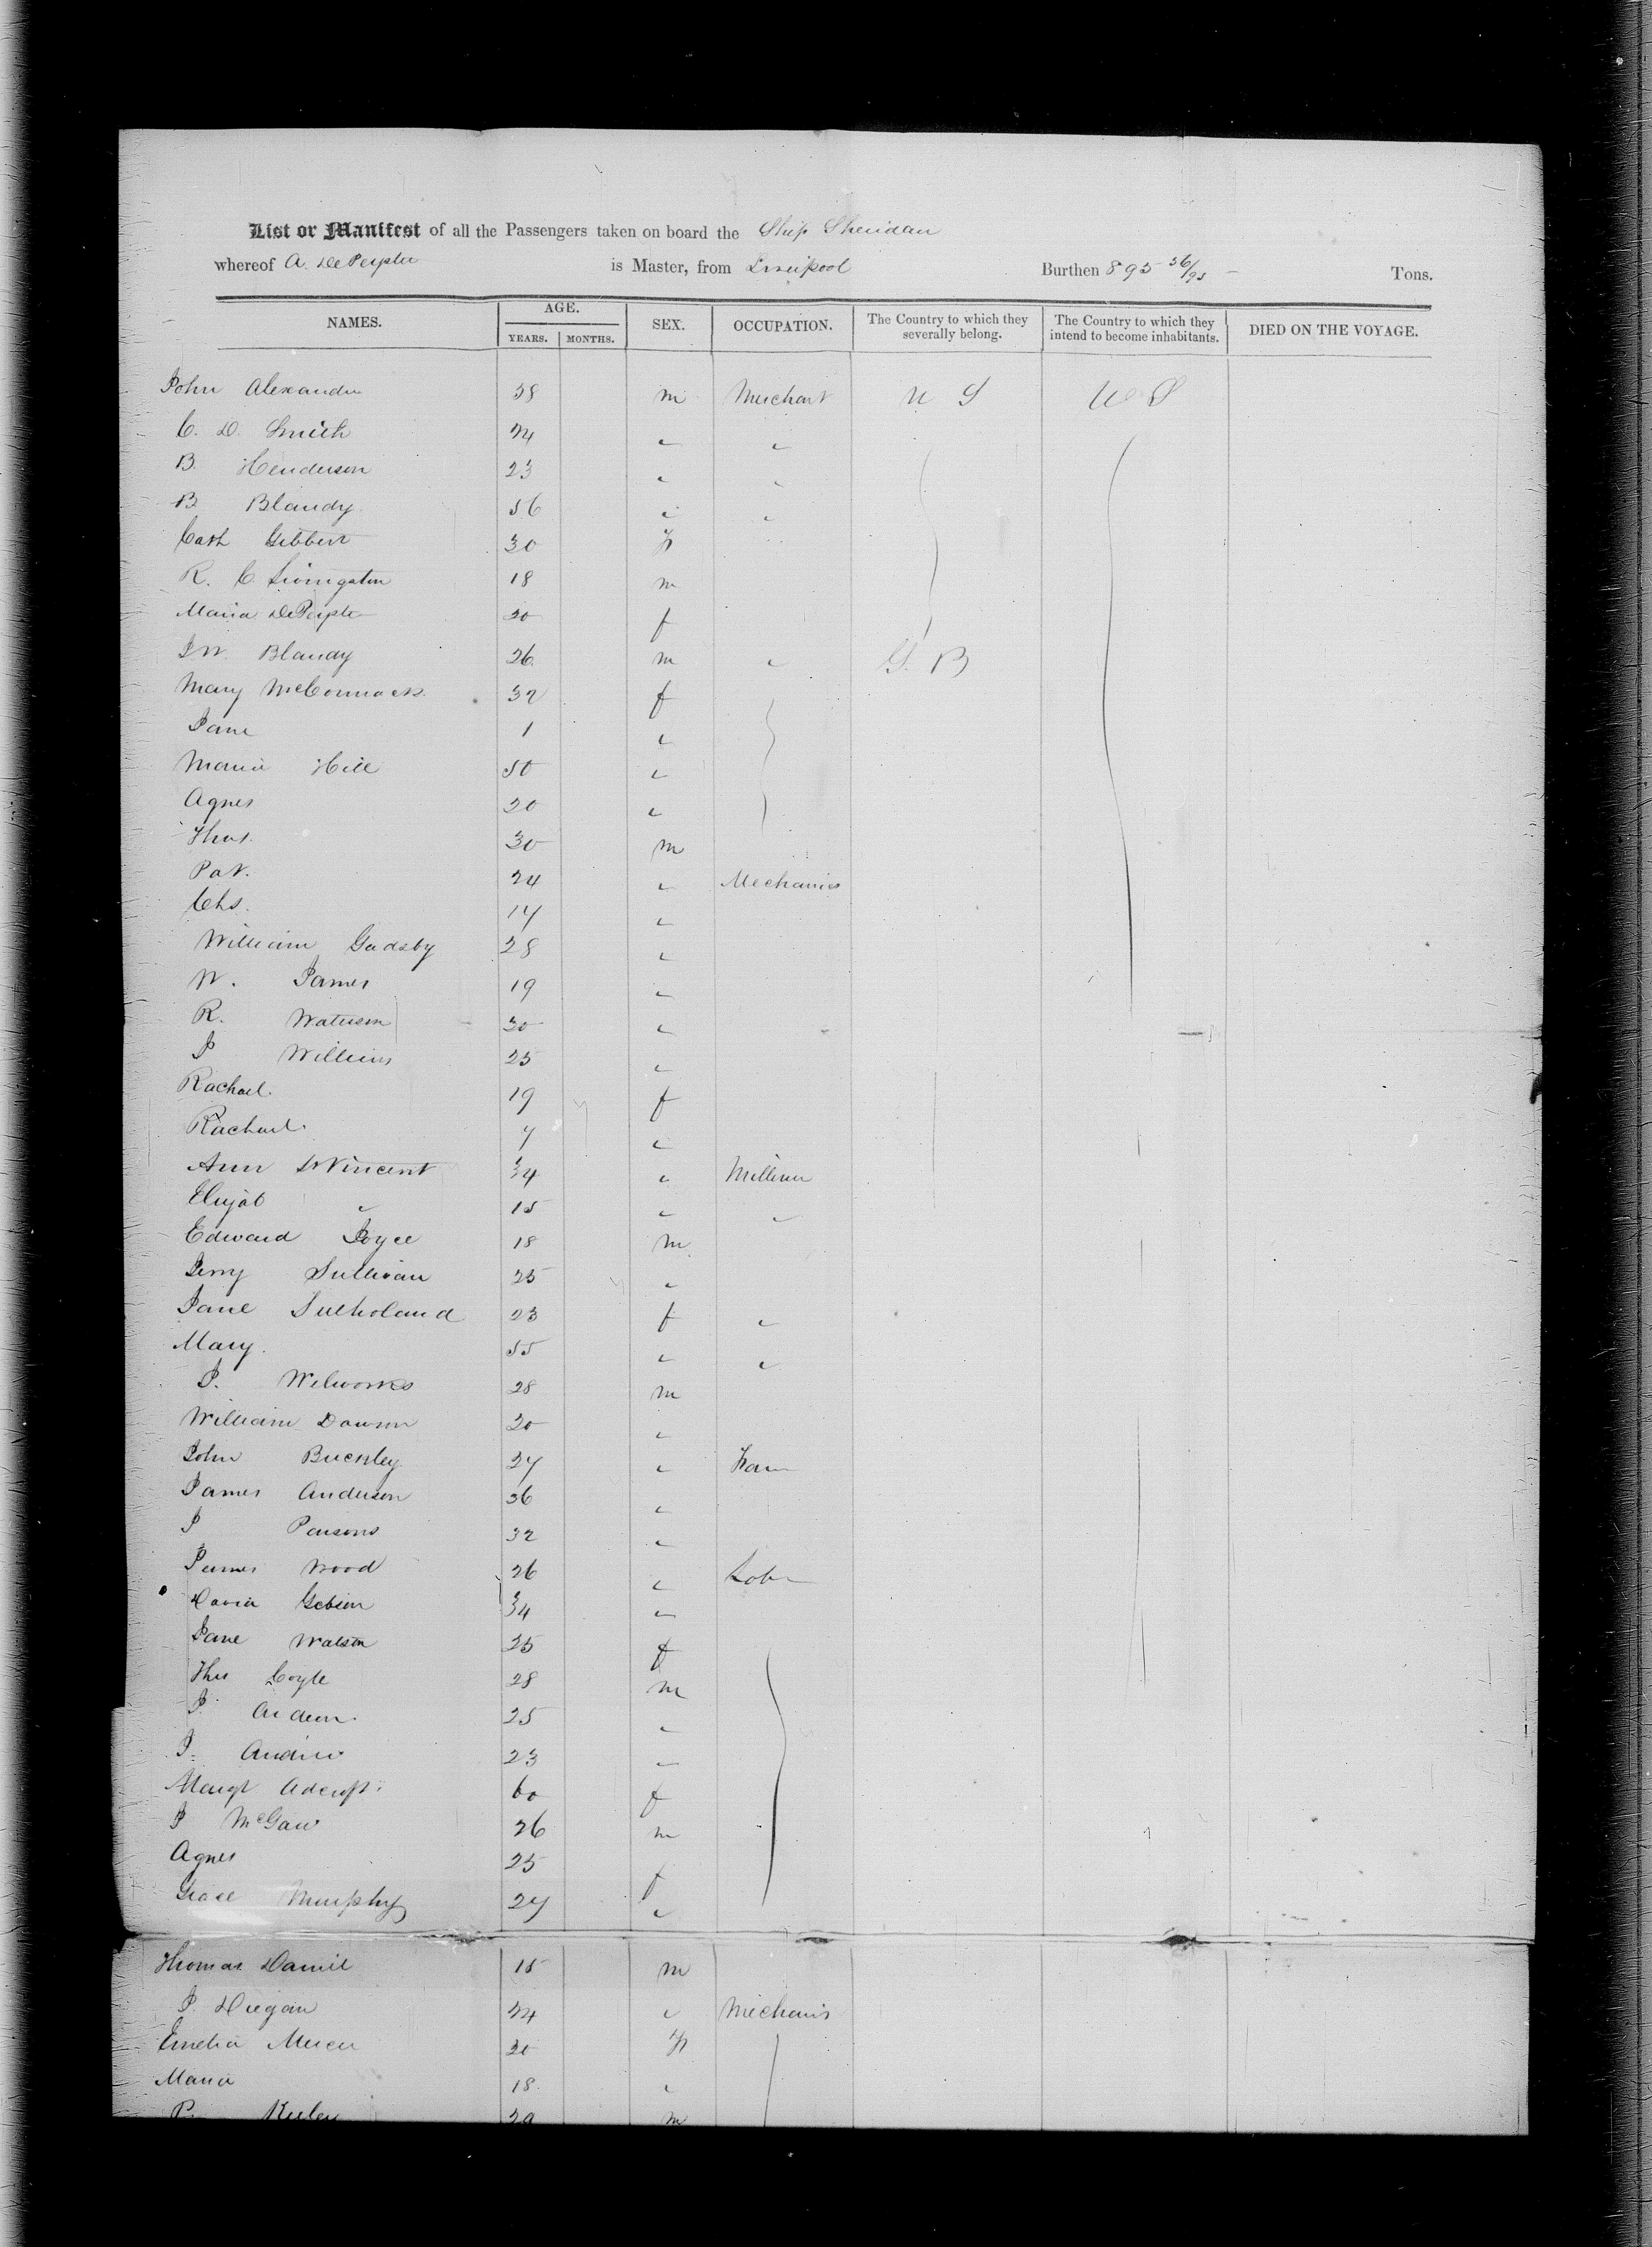 List or Manifest of all the Passengers taken on board the Ship Sheridan
whereof A. DePeyster is Master, from Liverpool Burthen 895 36/95 Tons.
NAMES. AGE. YEARS. MONTHS. SEX. OCCUPATION. The Country to which they severally belong. The Country to which they intend to become inhabitants. DIED ON THE VOYAGE.
John Alexander 38 m Merchant U S U S
C. D. Smith 24 " "
B. Henderson 23 " "
B Blandy 56 " "
Cath Gibbert 30 F
R. C. Livingston 18 m
Maria DePeyster 20 f
J W. Blandy 26 m " G. B
Mary McCormack 32 f
Jane 1 "
Maria Hill 50 "
Agnes 20 "
Thos. 30 m
Pat. 24 " Mechanics
Chs. 14 "
William Gadsby 28 "
W. James 19 "
R. Waterson 30 "
J Williams 25 "
Rachael 19 f
Rachael 7 "
Ann Vincent 34 " Milliner
15 " "
Edward Joyce 18 m
Jerry Sullivan 25 "
Jane Sutholand 23 f "
Mary 55 " "
J. 28 m
William Dawson 20 "
John Buckley 27 " Farm
James Anderson 36 "
J Parsons 32 "
James Wood 26 " Labr
David 34 "
Jane Watson 25 f
Ths Coyle 28 m
J. 25 "
J. Andrew 23 "
Margt Adcroft 60 f
J McGaw 26 m
Agnes 25 f
Grace Murphy 27 "
Thomas Daniel 15 m
J. Degan 24 " Mechanis
Emelia 20 F
Maria 18 "
P. 29 m